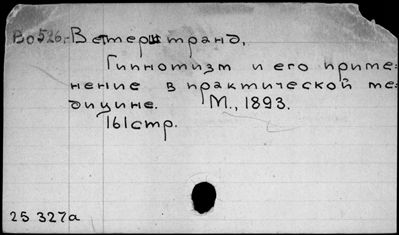 Во526. Ветерштранд,
Гипнотизм и его приме-
нение в практической ме-
дицине. М., 1893.
161стр.
25 327а